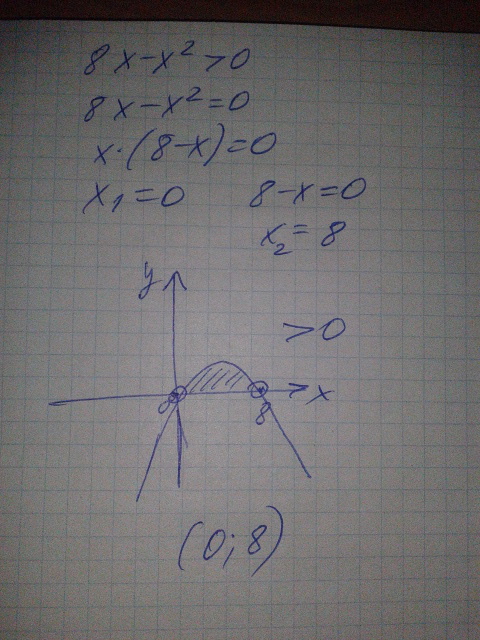 8x-x²>0
8x-x²=0
x·(8-x)=0
x₁=0 8-x=0
x₂=8
y
>0
0 8 x
(0;8)